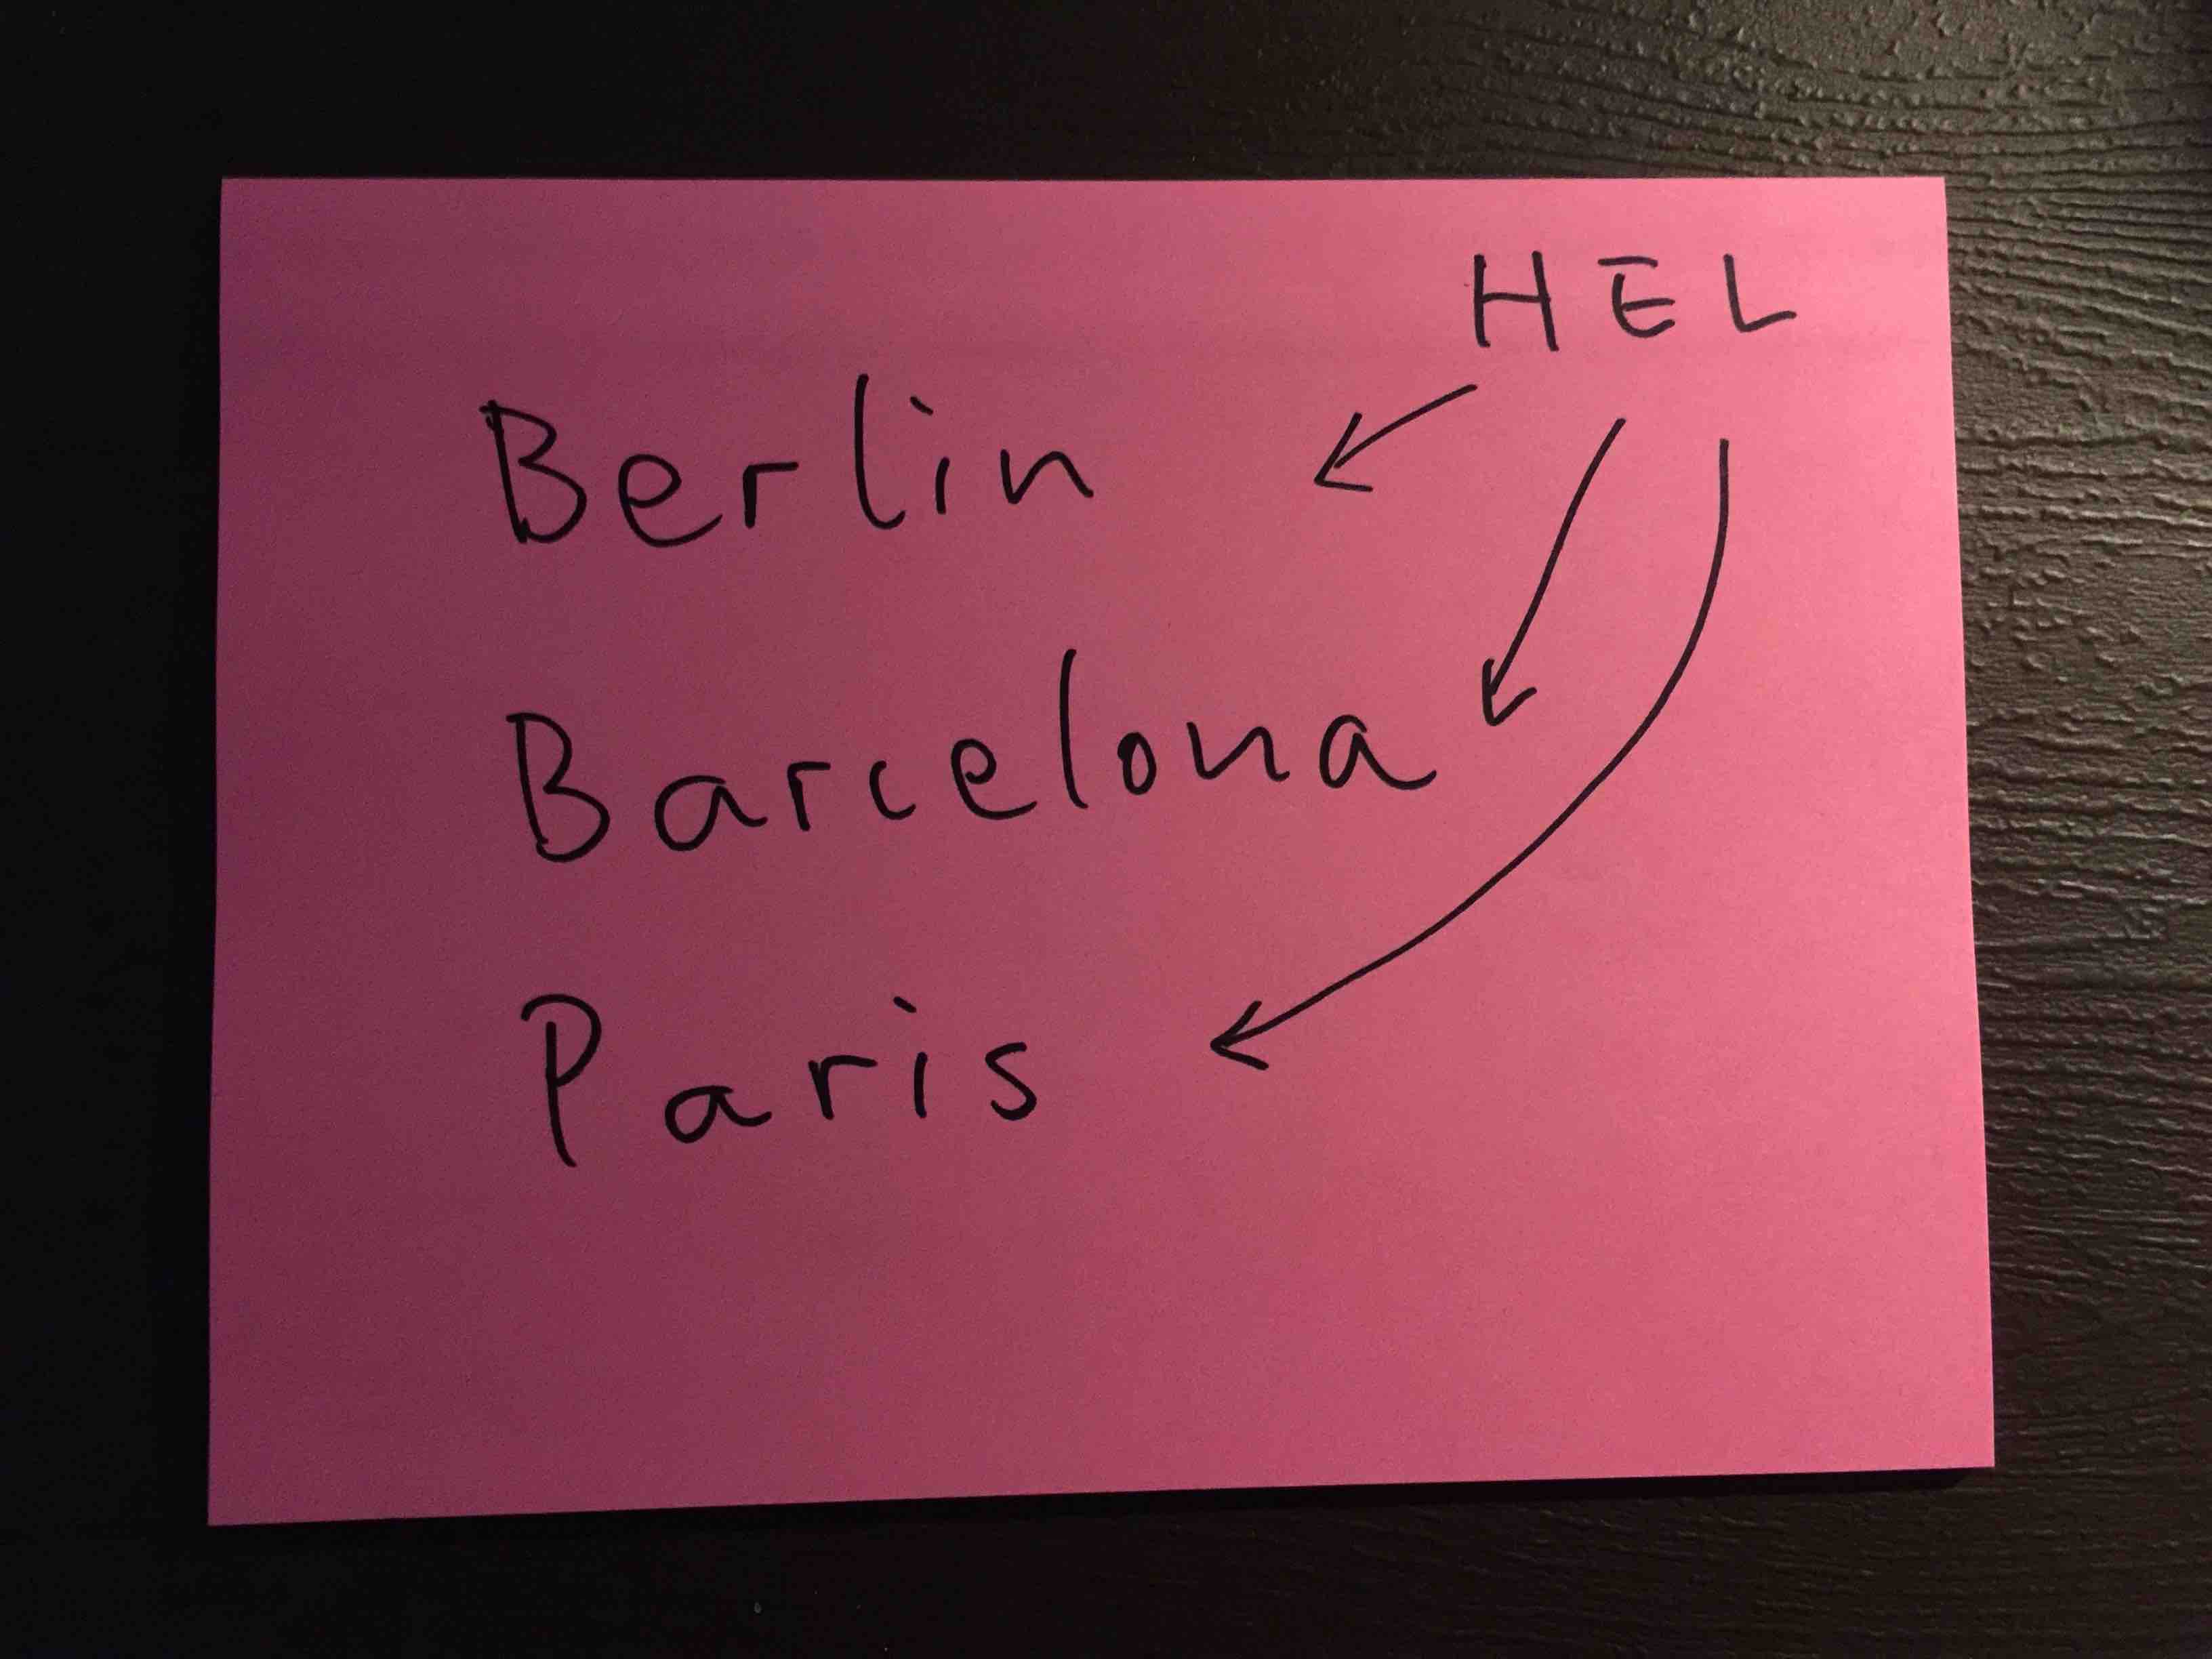 HEL
Berlin
Barcelona
Paris